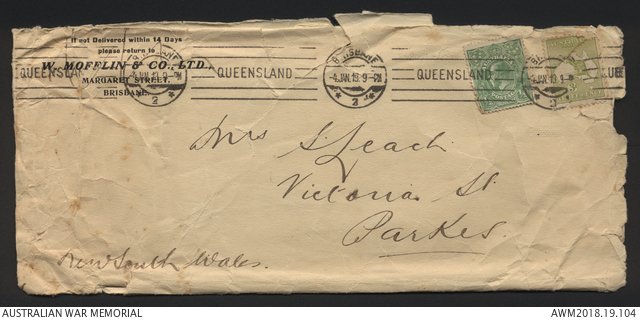 If not Delivered within 14 Days
please return to
W. MOFFLIN & CO., LTD.
MARGARET STREET,
BRISBANE.
QUEENSLAND
9-PM
2
QUEENSLAND
BRISBANE
-4JAN.19.9-PM
2
Mrs S Leach
Victoria St
Parkes.
New South Wales.
AUSTRALIAN WAR MEMORIAL
AWM2018.19.104